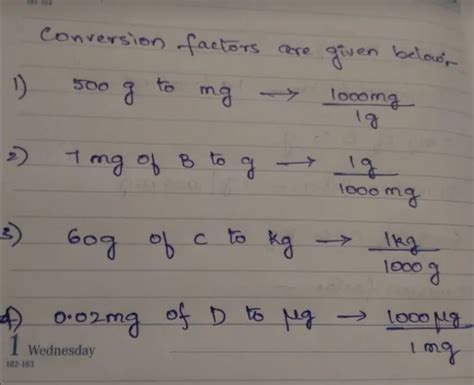 Conversion factors are given below:
1) 500 g to mg → 1000mg / 1g
2) 7 mg of B to g → 1g / 1000 mg
3) 60g of C to kg → 1kg / 1000 g
4) 0.02mg of D to μg → 1000μg / 1mg
1 Wednesday
182-183